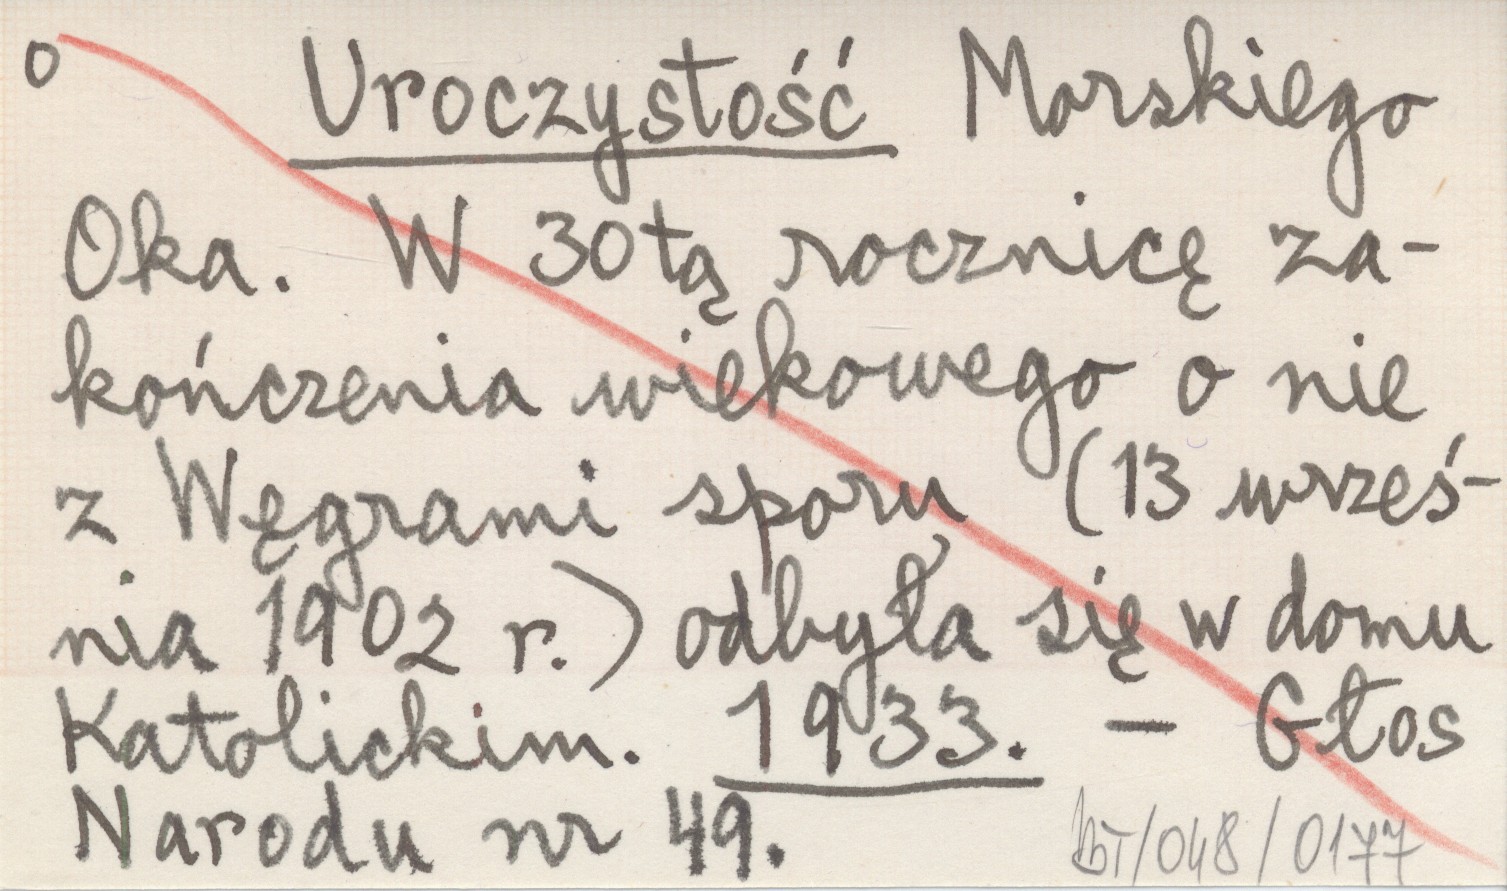 o Uroczystość Morskiego
Oka. W 30tą rocznicę za-
kończenia wiekowego o nie
z Węgrami sporu (13 wrześ-
nia 1902 r.) odbyła się w domu
Katolickim. 1933. — Głos
Narodu nr 49.
/048/0177